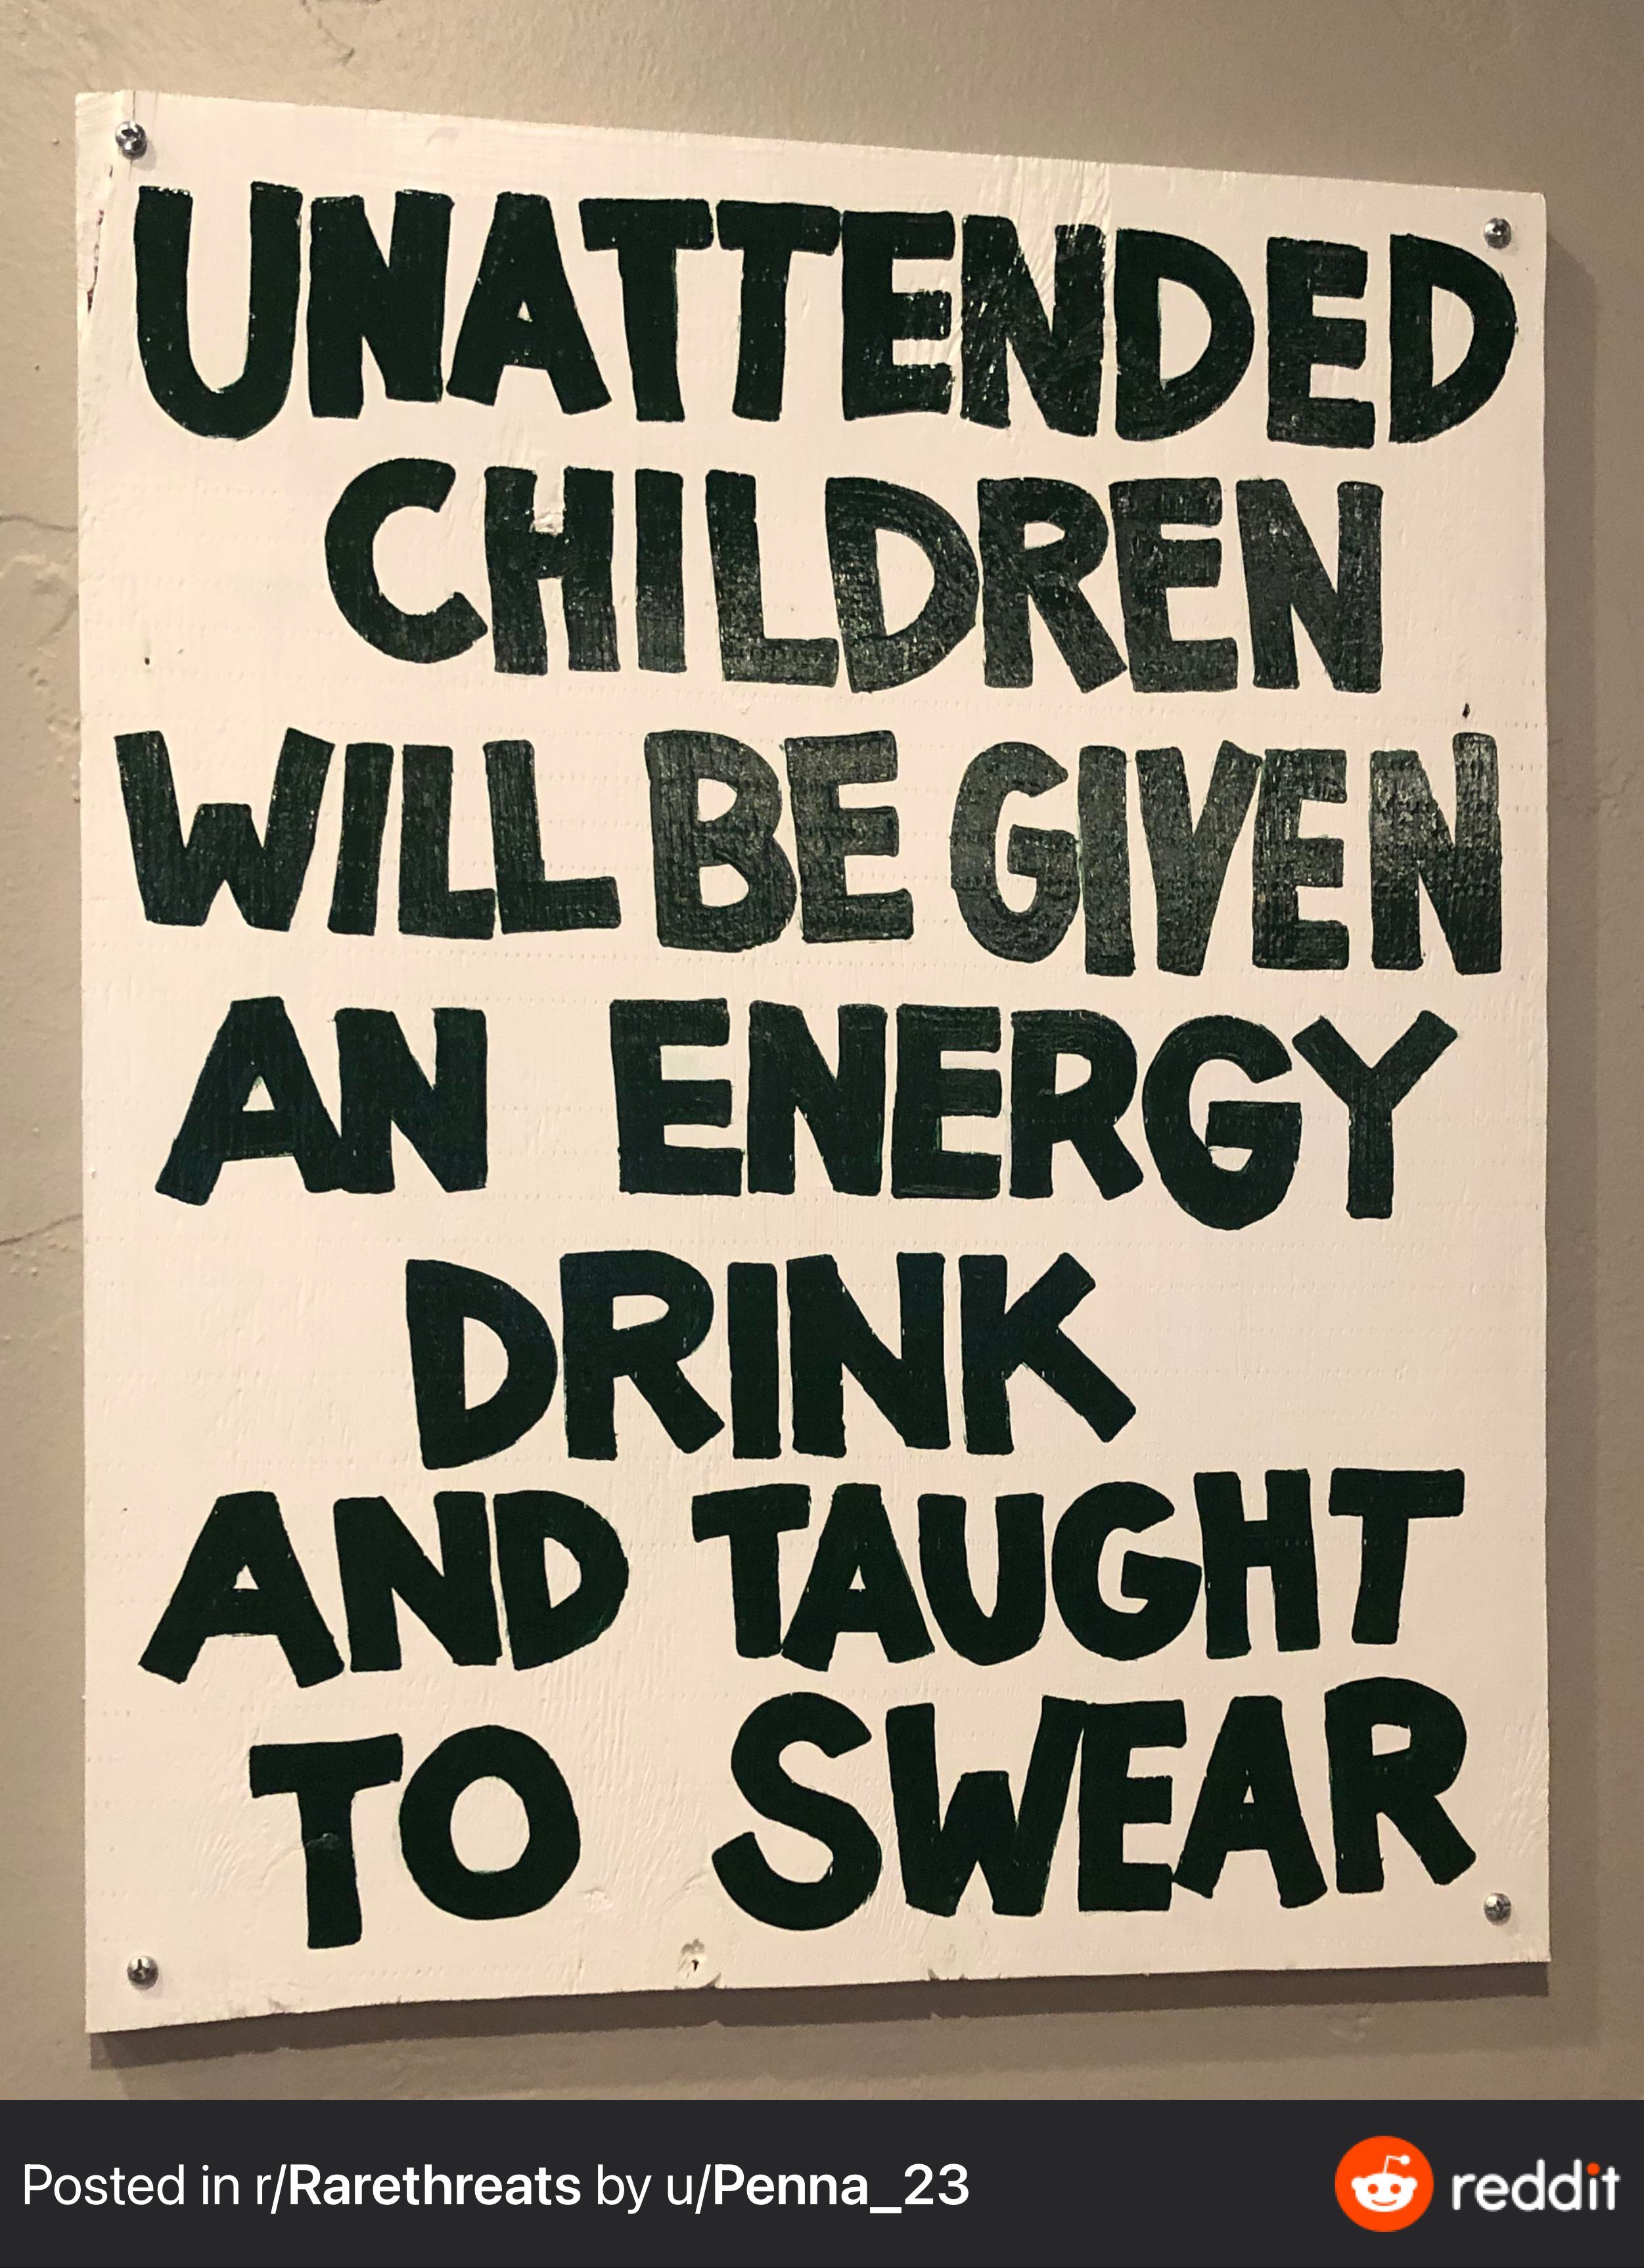 UNATTENDED
CHILDREN
WILL BE GIVEN
AN ENERGY
DRINK
AND TAUGHT
TO SWEAR
Posted in r/Rarethreats by u/Penna_23
reddit